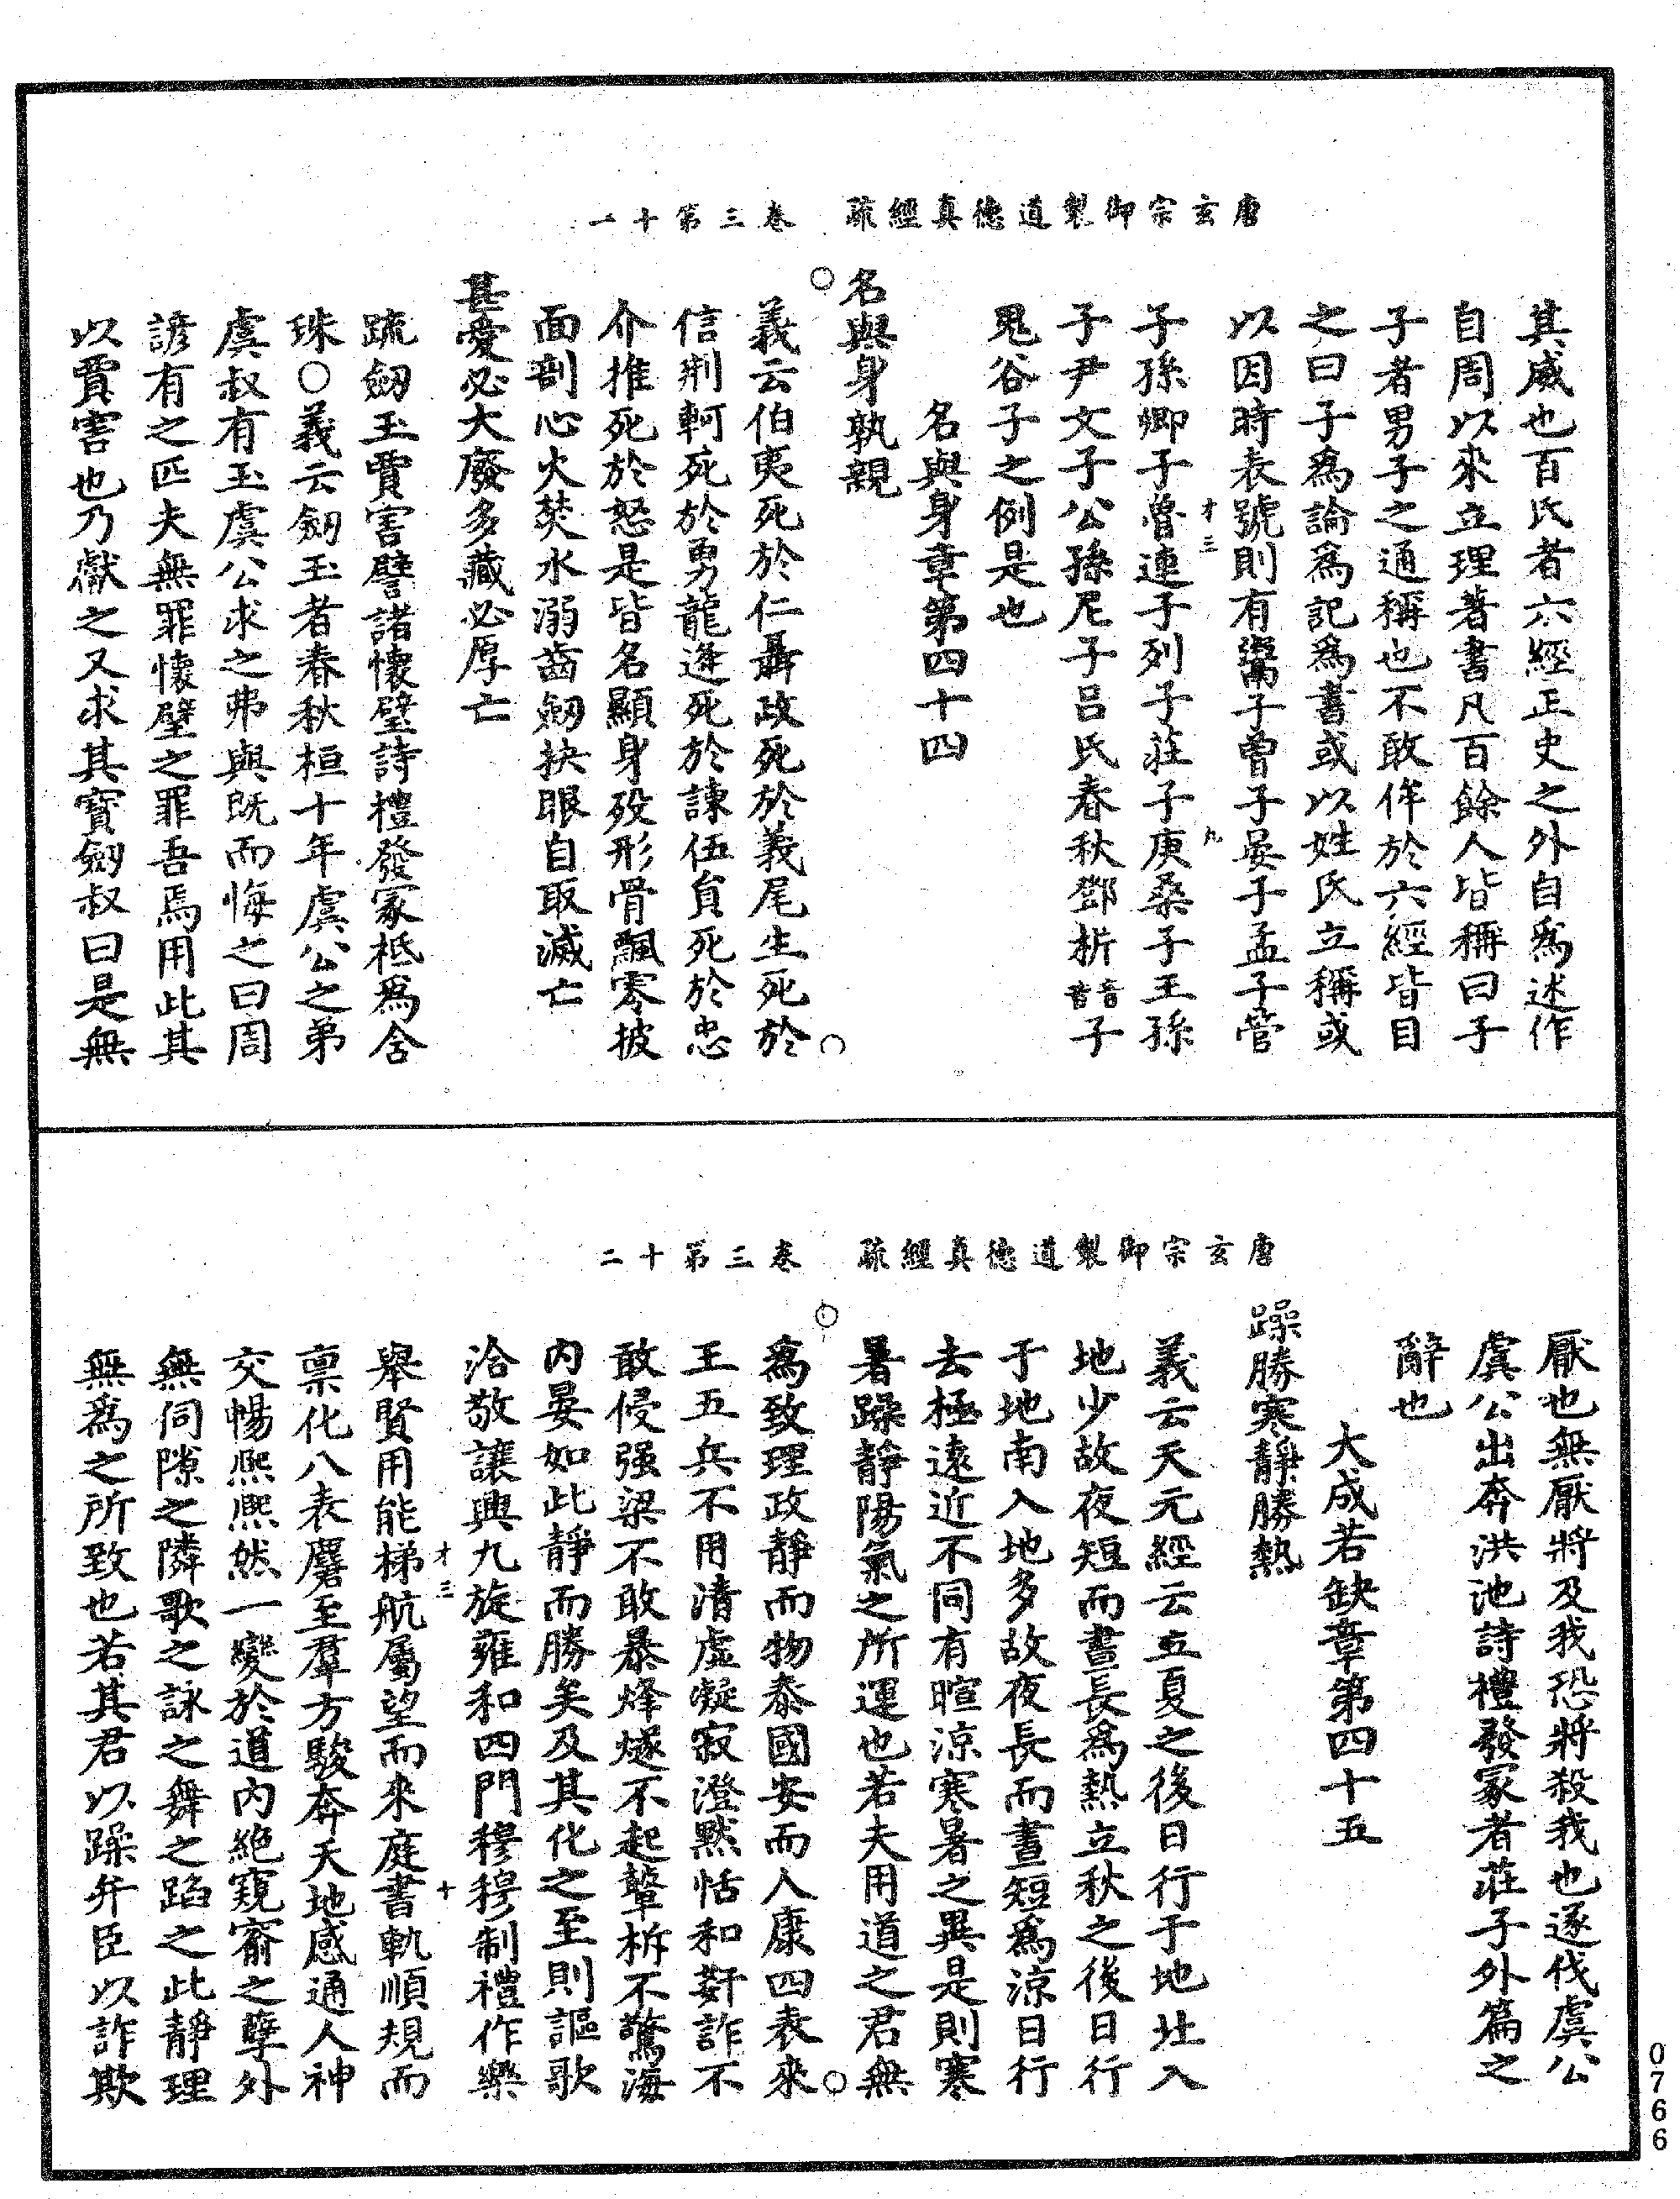 唐玄宗御製道德真經疏　卷三第十一
其威也百氏者六經正史之外自爲述作
自周以來立理著書凡百餘人皆稱曰子
子者男子之通稱也不敢侔於六經皆目
之曰子爲論爲記爲書或以姓氏立稱或
以因時表號則有鬻子曾子晏子孟子管
才三
九
子孫卿子魯連子列子莊子庚桑子王孫
子尹文子公孫尼子呂氏春秋鄧析音昔子
鬼谷子之例是也
名與身章第四十四
名與身孰親
義云伯夷死於仁聶政死於義尾生死於
信荆軻死於勇龍逄死於諫伍員死於忠
介推死於怒是皆名顯身歿形骨飄零披
面剖心火焚水溺齒劒抉眼自取滅亡
甚愛必大廢多藏必厚亡
䟽劒玉賈害譬諸懷璧詩禮發冢柢爲含
珠○義云劒玉者春秋桓十年虞公之弟
虞叔有玉虞公求之弗與既而悔之曰周
諺有之匹夫無罪懷璧之罪吾焉用此其
以賈害也乃獻之又求其寳劒叔曰是無
唐玄宗御製道德真經疏　卷三第十二
厭也無厭將及我恐將殺我也遂伐虞公
虞公出奔洪池詩禮發冢者莊子外篇之
辭也
大成若缺章第四十五
躁勝寒靜勝熱
義云天元經云立夏之後日行于地北入
地少故夜短而晝長爲熱立秋之後日行
于地南入地多故夜長而晝短爲涼日行
去極遠近不同有暄涼寒暑之異是則寒
暑躁靜陽氣之所運也若夫用道之君無
爲致理政靜而物泰國安而人康四表來
王五兵不用清虛凝寂澄默恬和姧詐不
敢侵强梁不敢暴烽燧不起鼙柝不驚海
内晏如此靜而勝矣及其化之至則謳歌
洽敬讓興九族雍和四門穆穆制禮作樂
才三
十
舉賢用能梯航屬望而來庭書軌順規而
禀化八表麏至羣方駿奔天地感通人神
交暢熙熙然一變於道内絶窺窬之孽外
無伺隙之隣歌之詠之舞之蹈之此靜理
無爲之所致也若其君以躁弁臣以詐欺
0766